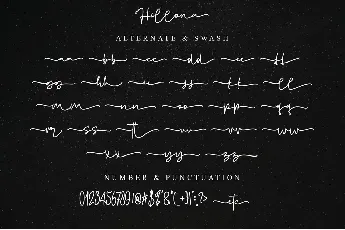 Hillona
ALTERNATE & SWASH
aa bb cc dd ee ff
gg hh ii jj kk ll
mm nn oo pp qq
rr ss tt uu vv ww
xx yy zz
NUMBER & PUNCTUATION